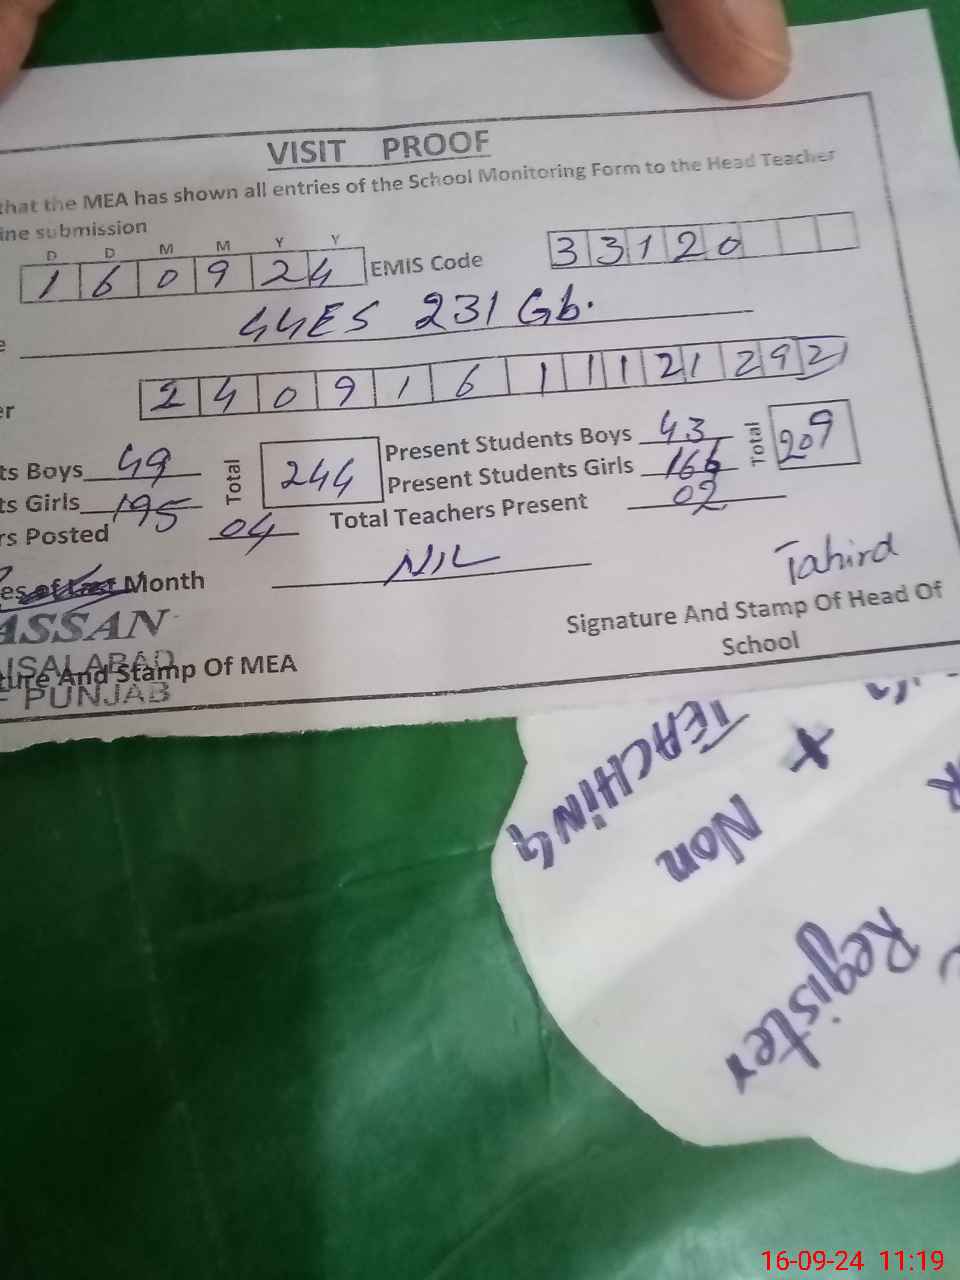 VISIT PROOF
that the MEA has shown all entries of the School Monitoring Form to the Head Teacher
ine submission
D D M M Y Y
1 6 0 9 2 4 EMIS Code 3 3 1 2 0
e GGES 231 Gb.
er 2 4 0 9 1 6 1 1 1 2 1 2 9 2
ts Boys 49 Total 244 Present Students Boys 43 Total 209
ts Girls 195 Present Students Girls 166
rs Posted 04 Total Teachers Present 02
es of Last Month NIL
Tahira
ASSAN
Signature And Stamp Of Head Of
School
ISALABAD
ture And Stamp Of MEA
PUNJAB
TEACHING
+ Non
Register
16-09-24 11:19